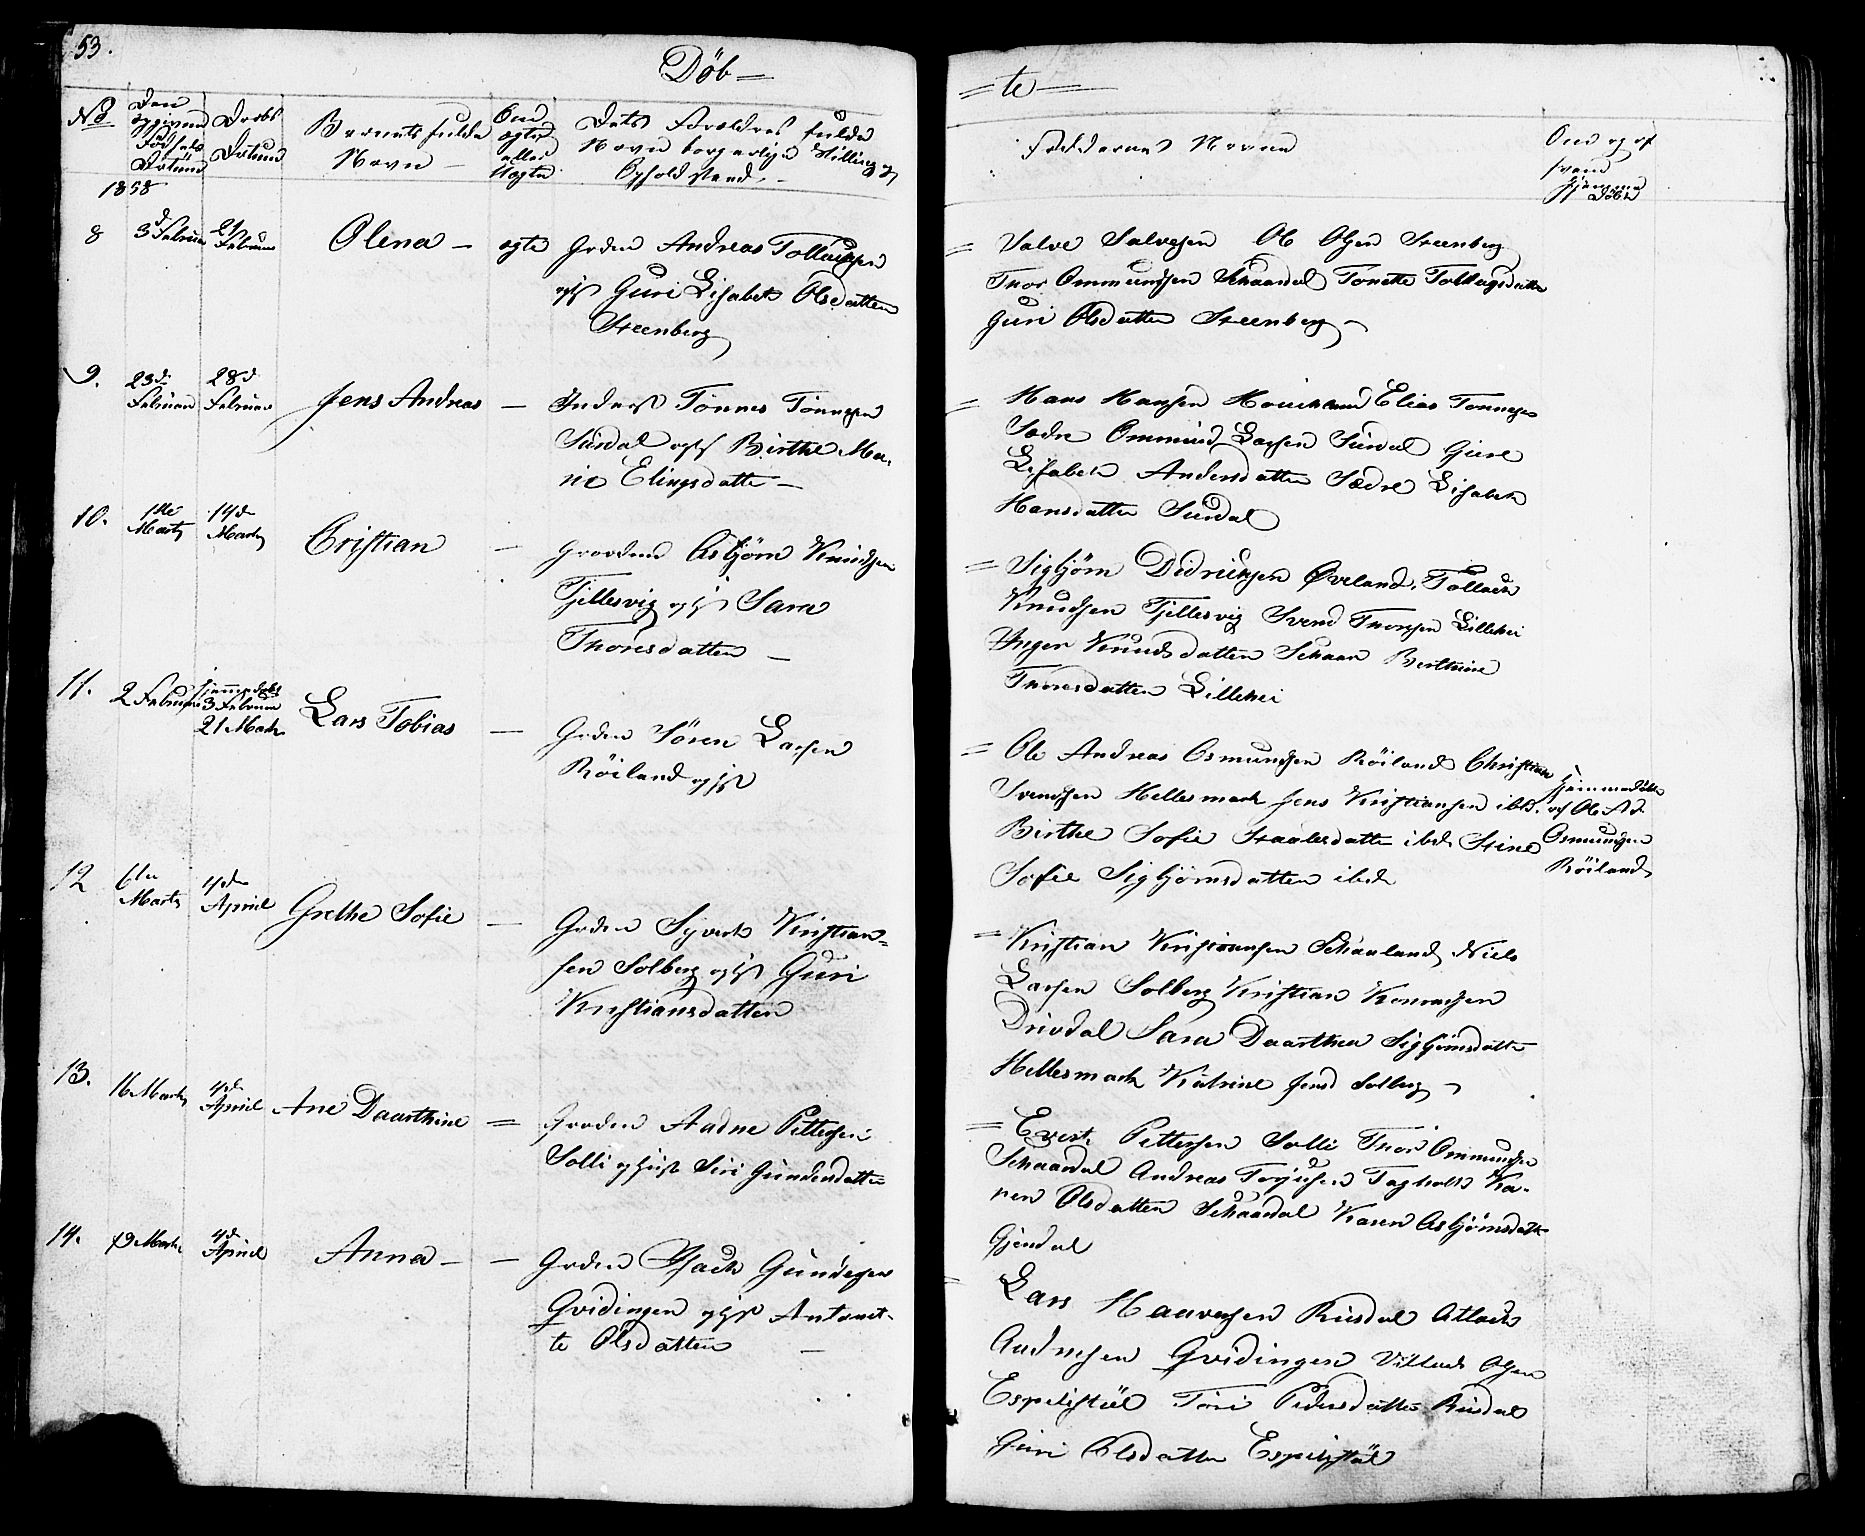 53.
Døb —
= te —
No
Den opgivne Fødsels Datum
Daabs Datum
Barnets fulde Navn —
Om ægte eller Uægte
Dets Forældres fulde Navn borgerlige Stilling og Opholdsted. —
Fadderenes Navne
Om og af hvem hjemme Døbt
1858
8
3d Februar
21 Februar
Olena —
ægte
Grden Andreas Tollaugsen
ogH Guri Lisabeth Olsdatter
Steenberg
= Salve Salvesen Ole Olsen Steenberg
Thor Ommundsen Schaardal Tonette Tollaugsdatter
Guri Olsdatter Steenberg —
9.
23d Februar
28d Februar
Jens Andreas —
Inderst Tønnes Tønnesen
Surdal ogH Birthe Ma-
rie Elingsdatter —
= Hans Hansen Elias Tønnesen
Sædre Ommund Larsen Surdal Gure
Lisabeth Andersdatter Sædre Lisabeth
Hansdatter Surdal
10.
1ste Marts
14de Marts
Cristian —
Graarden Asbjørn Knudsen
Tjellesvig ogH Sara
Thoresdatter —
= Sigbjørn Didriksen Øveland, Tollack
Knudsen Tjellesvig Svend Thorsen Lillehei
Inger Knudsdatter Schaar Berthine
Thoresdatter Lillehei
11.
2 Februar
hjemmedøbt 3 Februar
21 Marts
Lars Tobias —
Grden Søren Larsen
Røiland ogH
= Ole Andreas Osmundsen Røiland Christian
Svendsen Hellesmark Jens Kristiansen ibd.
Birthe Sofie Staalesdatter ibd. Stine
Sofie Sigbjørnsdatter ibd
Hjemmedøbt
af Ole Ad.
Osmundsen
Røiland
12
6te Marts
4de April
Grethe Sofie —
Grden Syvert Kristian-
sen Solberg ogH Guri
Kristiansdatter
= Kristian Kristiansen Schaaland, Niels
Larsen Solberg Kristian Konradsen
Drivdal Sara Daarthea Sigbjørnsdatter
Hellesmark Katrine Jensd Solberg —
13.
16 Marts
4de April
Ane Daarthine =
Graden Aadne Pettersen
Solli og Hust Siri Gundersdatter
= Evert Pettersen Solli Thor Ommundsen
Schaardal Andreas Torjusen Fagholt Ka-
ren Olsdatter Schaardal Karen Asbjørnsdatter
Gjendal
14.
19 Marts
4de April
Anna — —
Grden Isack Gundersen
Gvidingen ogH Antonet-
te Olsdatter —
Lars Haaversen Riisdal Atlack
Andresen Gvidingen Villads Olsen
Espelistøl Tori Pedersdatter Riisdal
Guri Olsdatter Espelistøl